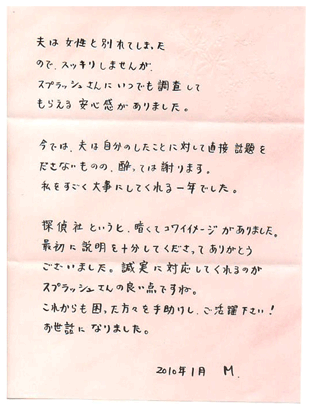 夫は女性と別れてしまった
ので、スッキリしませんが、
スプラッシュさんにいつでも調査して
もらえる安心感がありました。
今では、夫は自分のしたことに対して直接話題を
ださないものの、酔っては謝ります。
私をすごく大事にしてくれる一年でした。
探偵社というと、暗くてコワイイメージがありました。
最初に説明を十分してくださってありがとう
ございました。誠実に対応してくれるのが
スプラッシュさんの良い点ですね。
これからも困った方々を手助けし、ご活躍下さい！
お世話になりました。
2010年1月 M.